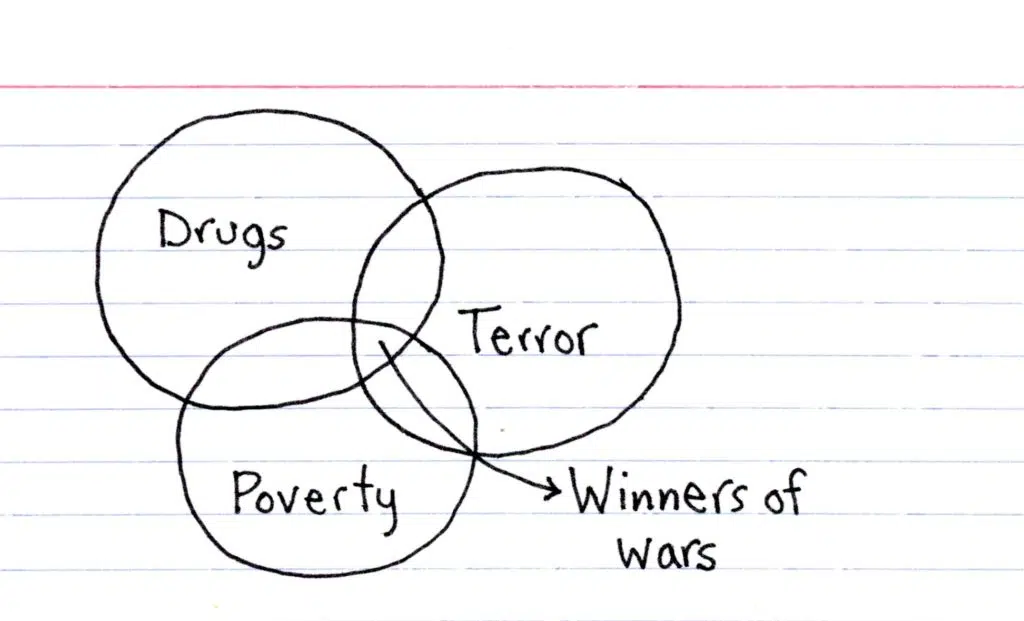 Drugs
Terror
Poverty
Winners of
wars